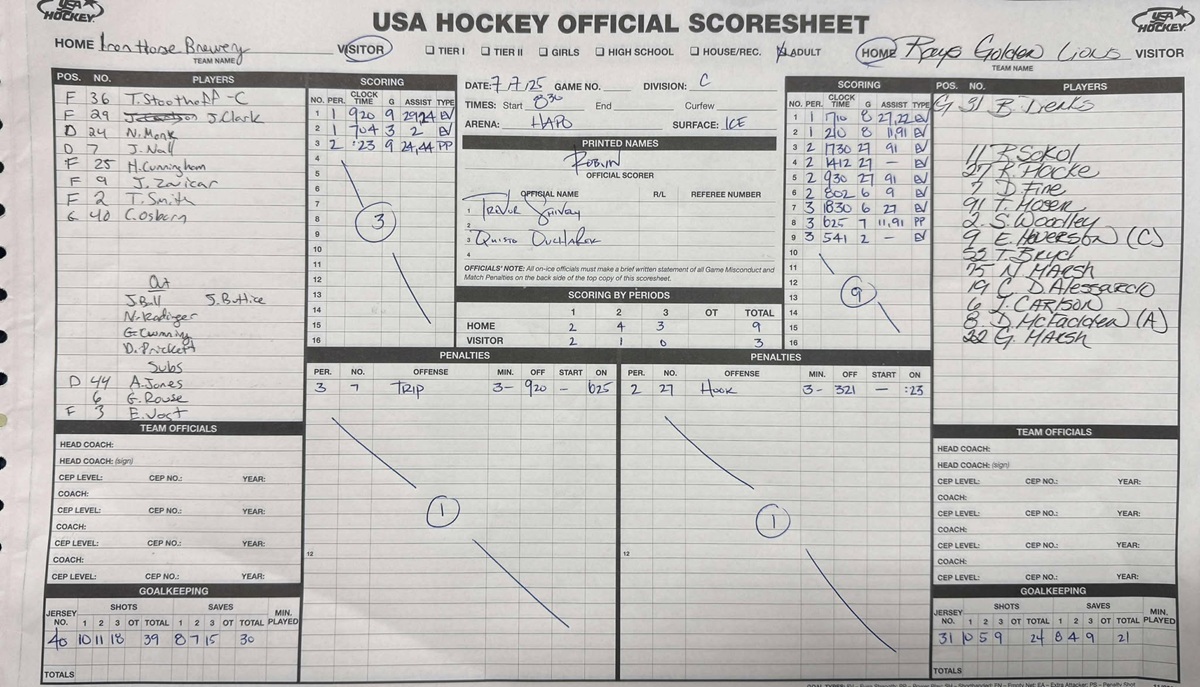 USA HOCKEY
USA HOCKEY OFFICIAL SCORESHEET
USA HOCKEY
HOME Iron Horse Brewery VISITOR
TEAM NAME
☐ TIER I ☐ TIER II ☐ GIRLS ☐ HIGH SCHOOL ☐ HOUSE/REC. ☒ ADULT
HOME Rays Golden Lions VISITOR
TEAM NAME
POS. NO. PLAYERS
F 36 T. Stoothoff -C
F 29 J. Clark
D 24 N. Monk
D 7 J. Nall
F 25 H. Cunningham
F 9 J. Zavicar
F 2 T. Smith
G 40 C. Osborn
Out
J. Bull J. Buttice
N. Radinger
G. Cunning
D. Prickett
Subs
D 44 A. Jones
6 G. Rouse
F 3 E. Vost
SCORING
NO. PER. CLOCK TIME G ASSIST TYPE
1 1 920 9 29,24 EV
2 1 704 3 2 EV
3 2 :23 9 24,44 PP
4
5
6
7
8
9
10
11
12
13
14
15
16
3
DATE: 7/7/25 GAME NO. DIVISION: C
TIMES: Start 830 End Curfew
ARENA: HAPO SURFACE: ICE
PRINTED NAMES
ROBIN
OFFICIAL SCORER
OFFICIAL NAME R/L REFEREE NUMBER
1 TREVOR SHIVELY
2
3 QUISTO DUCHAREK
4
OFFICIALS' NOTE: All on-ice officials must make a brief written statement of all Game Misconduct and
Match Penalties on the back side of the top copy of this scoresheet.
SCORING BY PERIODS
1 2 3 OT TOTAL
HOME 2 4 3 9
VISITOR 2 1 0 3
SCORING
NO. PER. CLOCK TIME G ASSIST TYPE
1 1 1710 8 27,22 EV
2 1 210 8 11,91 EV
3 2 1730 27 91 EV
4 2 1412 27 — EV
5 2 930 27 91 EV
6 2 802 6 9 EV
7 3 1830 6 27 EV
8 3 625 7 11,91 PP
9 3 541 2 — EV
10
11
12
13
14
15
16
9
POS. NO. PLAYERS
G 31 B. Derks
11 R. Sokol
27 R. Hocke
7 D. Fine
91 T. Moser
2. S. Woodley
9 E. Hoverson (C)
55 T. Bryd
75 N. Marsh
19 C. D'Alessarcio
6 J. Carlson
8. D. McFadden (A)
22 G. Marsh
PENALTIES
PER. NO. OFFENSE MIN. OFF START ON
3 7 TRIP 3- 920 — 625
12
1
PENALTIES
PER. NO. OFFENSE MIN. OFF START ON
2 27 Hook 3- 321 — :23
12
1
TEAM OFFICIALS
HEAD COACH:
HEAD COACH: (sign)
CEP LEVEL: CEP NO.: YEAR:
COACH:
CEP LEVEL: CEP NO.: YEAR:
COACH:
CEP LEVEL: CEP NO.: YEAR:
COACH:
CEP LEVEL: CEP NO.: YEAR:
GOALKEEPING
SHOTS SAVES
JERSEY NO. 1 2 3 OT TOTAL 1 2 3 OT TOTAL MIN. PLAYED
40 10 11 18 39 8 7 15 30
TOTALS
TEAM OFFICIALS
HEAD COACH:
HEAD COACH: (sign)
CEP LEVEL: CEP NO.: YEAR:
COACH:
CEP LEVEL: CEP NO.: YEAR:
COACH:
CEP LEVEL: CEP NO.: YEAR:
COACH:
CEP LEVEL: CEP NO.: YEAR:
GOALKEEPING
SHOTS SAVES
JERSEY NO. 1 2 3 OT TOTAL 1 2 3 OT TOTAL MIN. PLAYED
31 10 5 9 24 8 4 9 21
TOTALS